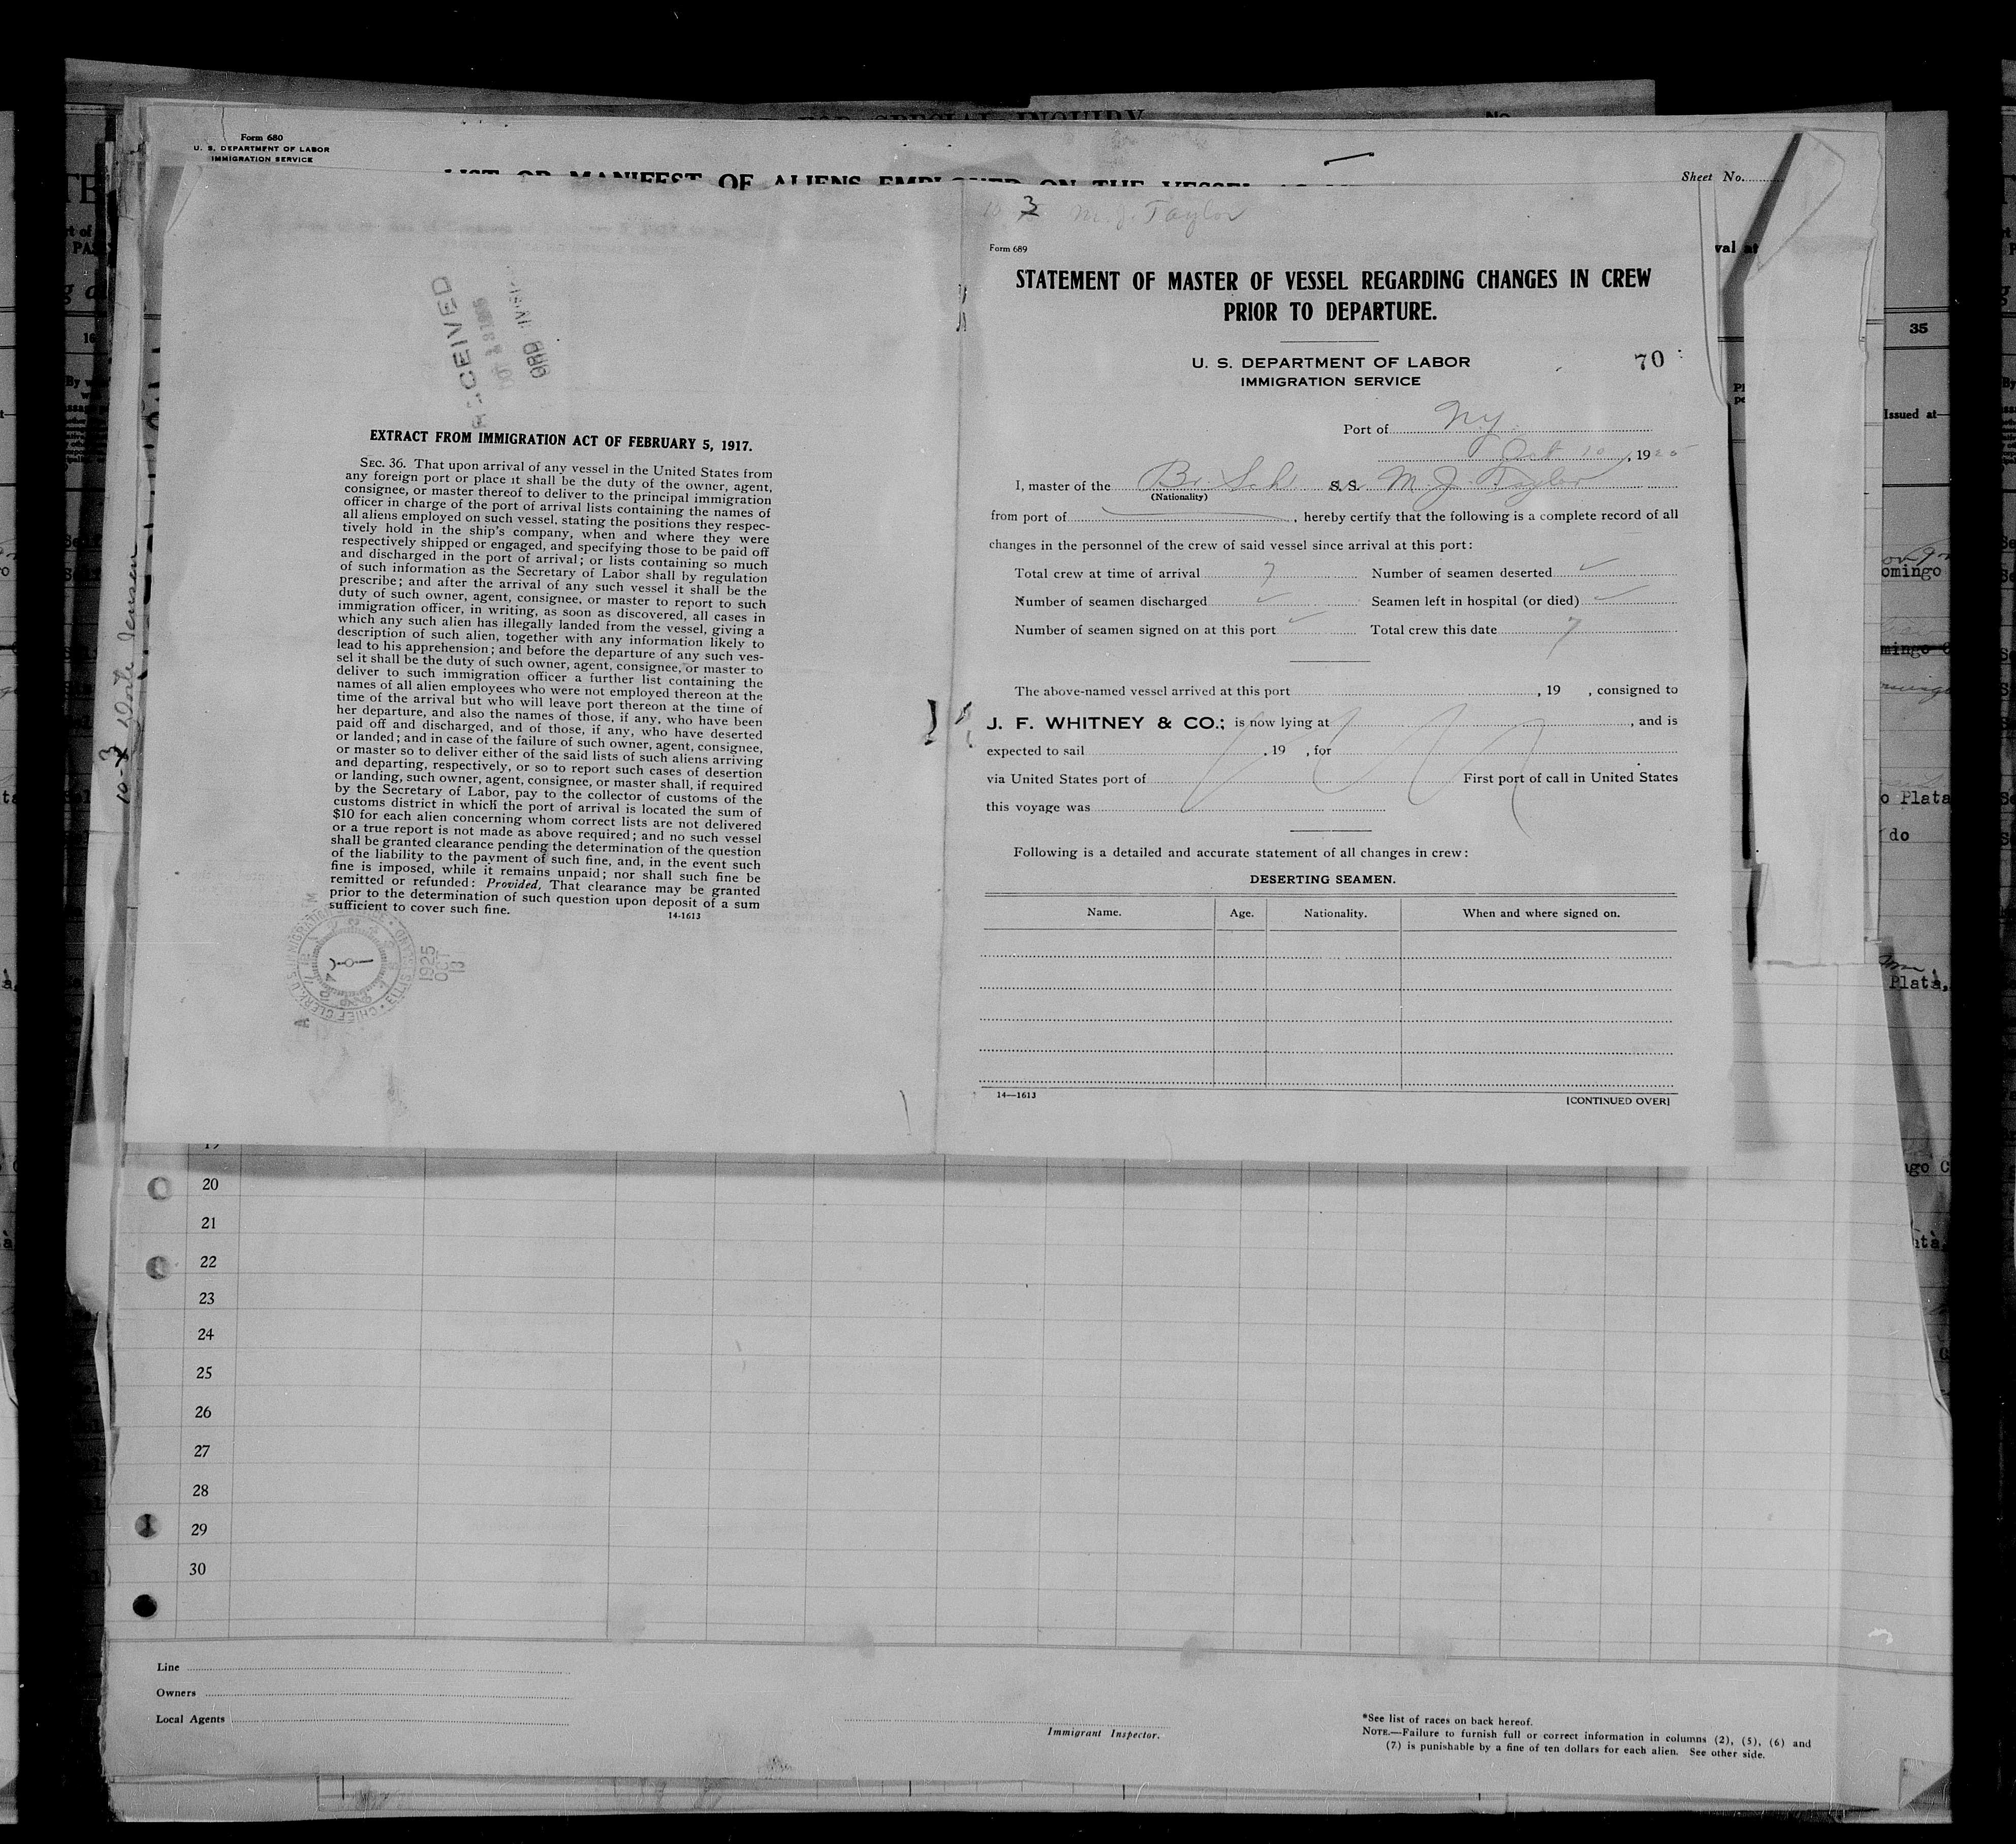 FOR SPECIAL INQUIRY
No
Form 680
U. S. DEPARTMENT OF LABOR
IMMIGRATION SERVICE
LIST OR MANIFEST OF ALIENS EMPLOYED ON THE VESSEL
Sheet No.
RECEIVED
EXTRACT FROM IMMIGRATION ACT OF FEBRUARY 5, 1917.
SEC. 36. That upon arrival of any vessel in the United States from
any foreign port or place it shall be the duty of the owner, agent,
consignee, or master thereof to deliver to the principal immigration
officer in charge of the port of arrival lists containing the names of
all aliens employed on such vessel, stating the positions they respec-
tively hold in the ship's company, when and where they were
respectively shipped or engaged, and specifying those to be paid off
and discharged in the port of arrival; or lists containing so much
of such information as the Secretary of Labor shall by regulation
prescribe; and after the arrival of any such vessel it shall be the
duty of such owner, agent, consignee, or master to report to such
immigration officer, in writing, as soon as discovered, all cases in
which any such alien has illegally landed from the vessel, giving a
description of such alien, together with any information likely to
lead to his apprehension; and before the departure of any such ves-
sel it shall be the duty of such owner, agent, consignee, or master to
deliver to such immigration officer a further list containing the
names of all alien employees who were not employed thereon at the
time of the arrival but who will leave port thereon at the time of
her departure, and also the names of those, if any, who have been
paid off and discharged, and of those, if any, who have deserted
or landed; and in case of the failure of such owner, agent, consignee,
or master so to deliver either of the said lists of such aliens arriving
and departing, respectively, or so to report such cases of desertion
or landing, such owner, agent, consignee, or master shall, if required
by the Secretary of Labor, pay to the collector of customs of the
customs district in which the port of arrival is located the sum of
$10 for each alien concerning whom correct lists are not delivered
or a true report is not made as above required; and no such vessel
shall be granted clearance pending the determination of the question
of the liability to the payment of such fine, and, in the event such
fine is imposed, while it remains unpaid; nor shall such fine be
remitted or refunded: Provided, That clearance may be granted
prior to the determination of such question upon deposit of a sum
sufficient to cover such fine.
14-1613
CHIEF CLERK, U.S. IMMIGRATION
ELLIS ISLAND
1925
OCT
13
3 M. J. Taylor
Form 689
STATEMENT OF MASTER OF VESSEL REGARDING CHANGES IN CREW
PRIOR TO DEPARTURE.
U. S. DEPARTMENT OF LABOR
IMMIGRATION SERVICE
70
Port of N.Y.
Oct 10, 1925
I, master of the Br Sch S.S. M. J. Taylor
(Nationality)
from port of , hereby certify that the following is a complete record of all
changes in the personnel of the crew of said vessel since arrival at this port:
Total crew at time of arrival 7 Number of seamen deserted ✓
Number of seamen discharged ✓ Seamen left in hospital (or died) ✓
Number of seamen signed on at this port ✓ Total crew this date 7
The above-named vessel arrived at this port , 19 , consigned to
J. F. WHITNEY & CO.; is now lying at , and is
expected to sail , 19 , for
via United States port of First port of call in United States
this voyage was
Following is a detailed and accurate statement of all changes in crew:
DESERTING SEAMEN.
Name. Age. Nationality. When and where signed on.
14—1613
[CONTINUED OVER]
35
Issued at—
omingo
o Plata
do
Plata,
19
20
21
22
23
24
25
26
27
28
29
30
Line
Owners
Local Agents
Immigrant Inspector.
*See list of races on back hereof.
NOTE.—Failure to furnish full or correct information in columns (2), (5), (6) and
(7) is punishable by a fine of ten dollars for each alien. See other side.